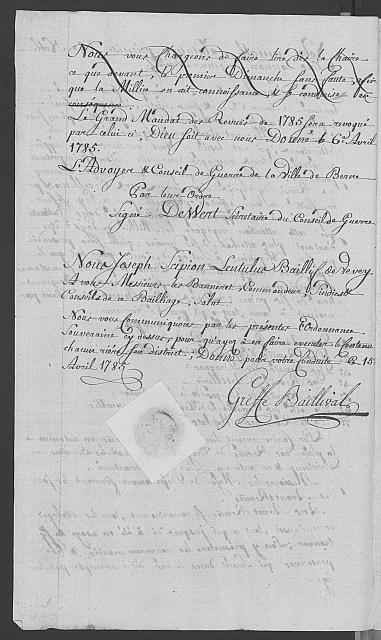 Nous vous Chargeons de faire lire dès la Chaire
ce que devant, le premier Dimanche sans faute, afin
que la Millice en ait connoissance & se conduise
conséquence.
Le Grand Mandat des Revües de 1785 sera revoqué
par celui ci; Dieu soit avec nous Donné le 6e Avril
1785.
L'Advoyer & Conseil de Guerre de la Ville de Berne
Par leur Ordre
Signé DeWert Secretaire du Conseil de Guerre
Nous Joseph Scipion Lentulus Baillif de Vevey
A vous Messieurs les Banneret, Commandeur,
Conseils de ce Bailliage, Salut.
Nous vous Communiquons par les presentes l'Ordonnance
Souveraine cy dessus, pour qu'ayez à en faire executer le Contenu
chacun rière son district; Donné pour votre Conduite Ce 15
Avril 1785
Greffe Baillival